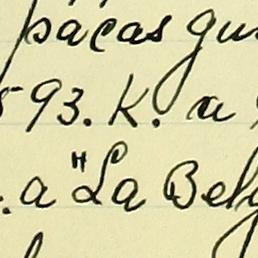 pácas gu
593. K. a
. a "La Bel